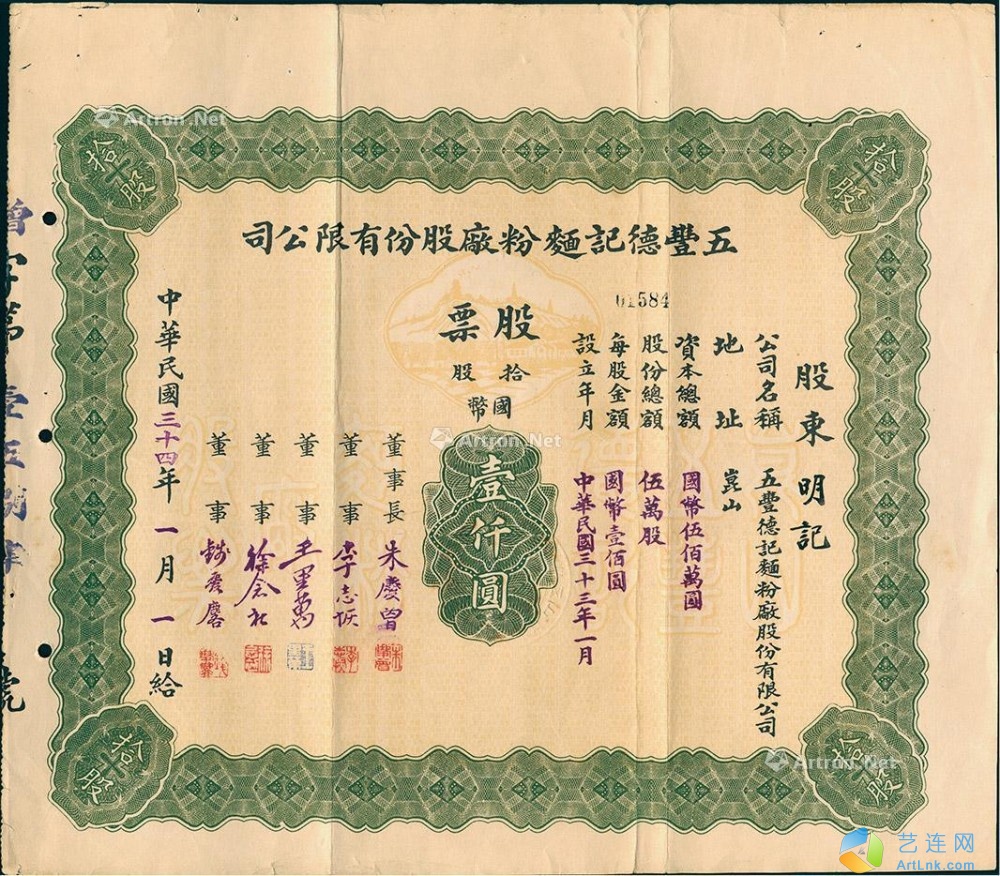 五豐德記麵粉廠股份有限公司
01584
股票
拾股
國幣
壹仟圓
股東 明記
公司名稱 五豐德記麵粉廠股份有限公司
地址 崑山
資本總額 國幣伍佰萬圓
股份總額 伍萬股
每股金額 國幣壹佰圓
設立年月 中華民國三十三年一月
董事長 朱慶曾
董事 李志
董事 王
董事 徐念
董事
中華民國三十四年一月一日給
拾股
拾股
拾股
拾股
Artron.Net
Artron.Net
Artron.Net
Artron.Net
艺连网
ArtLnk.com